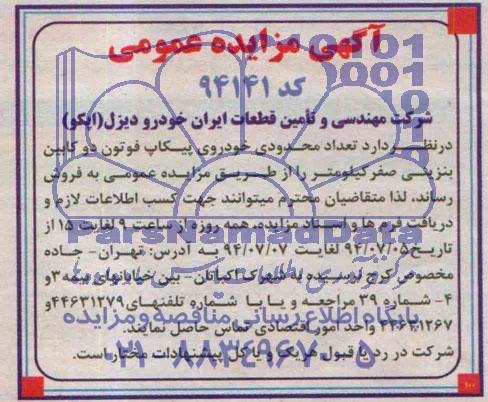 آگهی مزایده عمومی
کد ۹۴۱۴۱
شرکت مهندسی و تأمین قطعات ایران خودرو دیزل(اپکو)
درنظر دارد تعداد محدودی خودروی پیکاپ فوتون دو کابین
بنزینی صفر کیلومتر را از طریق مزایده عمومی به فروش
رساند، لذا متقاضیان محترم میتوانند جهت کسب اطلاعات لازم و
دریافت فرم ها و اسناد مزایده، همه روزه از ساعت ۹ لغایت ۱۵ از
تاریخ ۹۴/۰۷/۰۵ لغایت ۹۴/۰۷/۰۷ به آدرس: تهران - جاده
مخصوص کرج نرسیده به شهرک اکباتان - بین خیابانهای بیمه ۳ و
۴- شماره ۳۹ مراجعه و یا با شماره تلفنهای ۴۴۶۳۱۲۷۹ و
۴۴۶۴۱۲۶۷ واحد امور اقتصادی تماس حاصل نمایند.
شرکت در رد یا قبول هریک و یا کل پیشنهادات مختار است.
ParsNamadData
پایگاه اطلاع رسانی مناقصه و مزایده
۰۲۱-۸۸۳۴۹۶۷۰-۵
۱۰۰